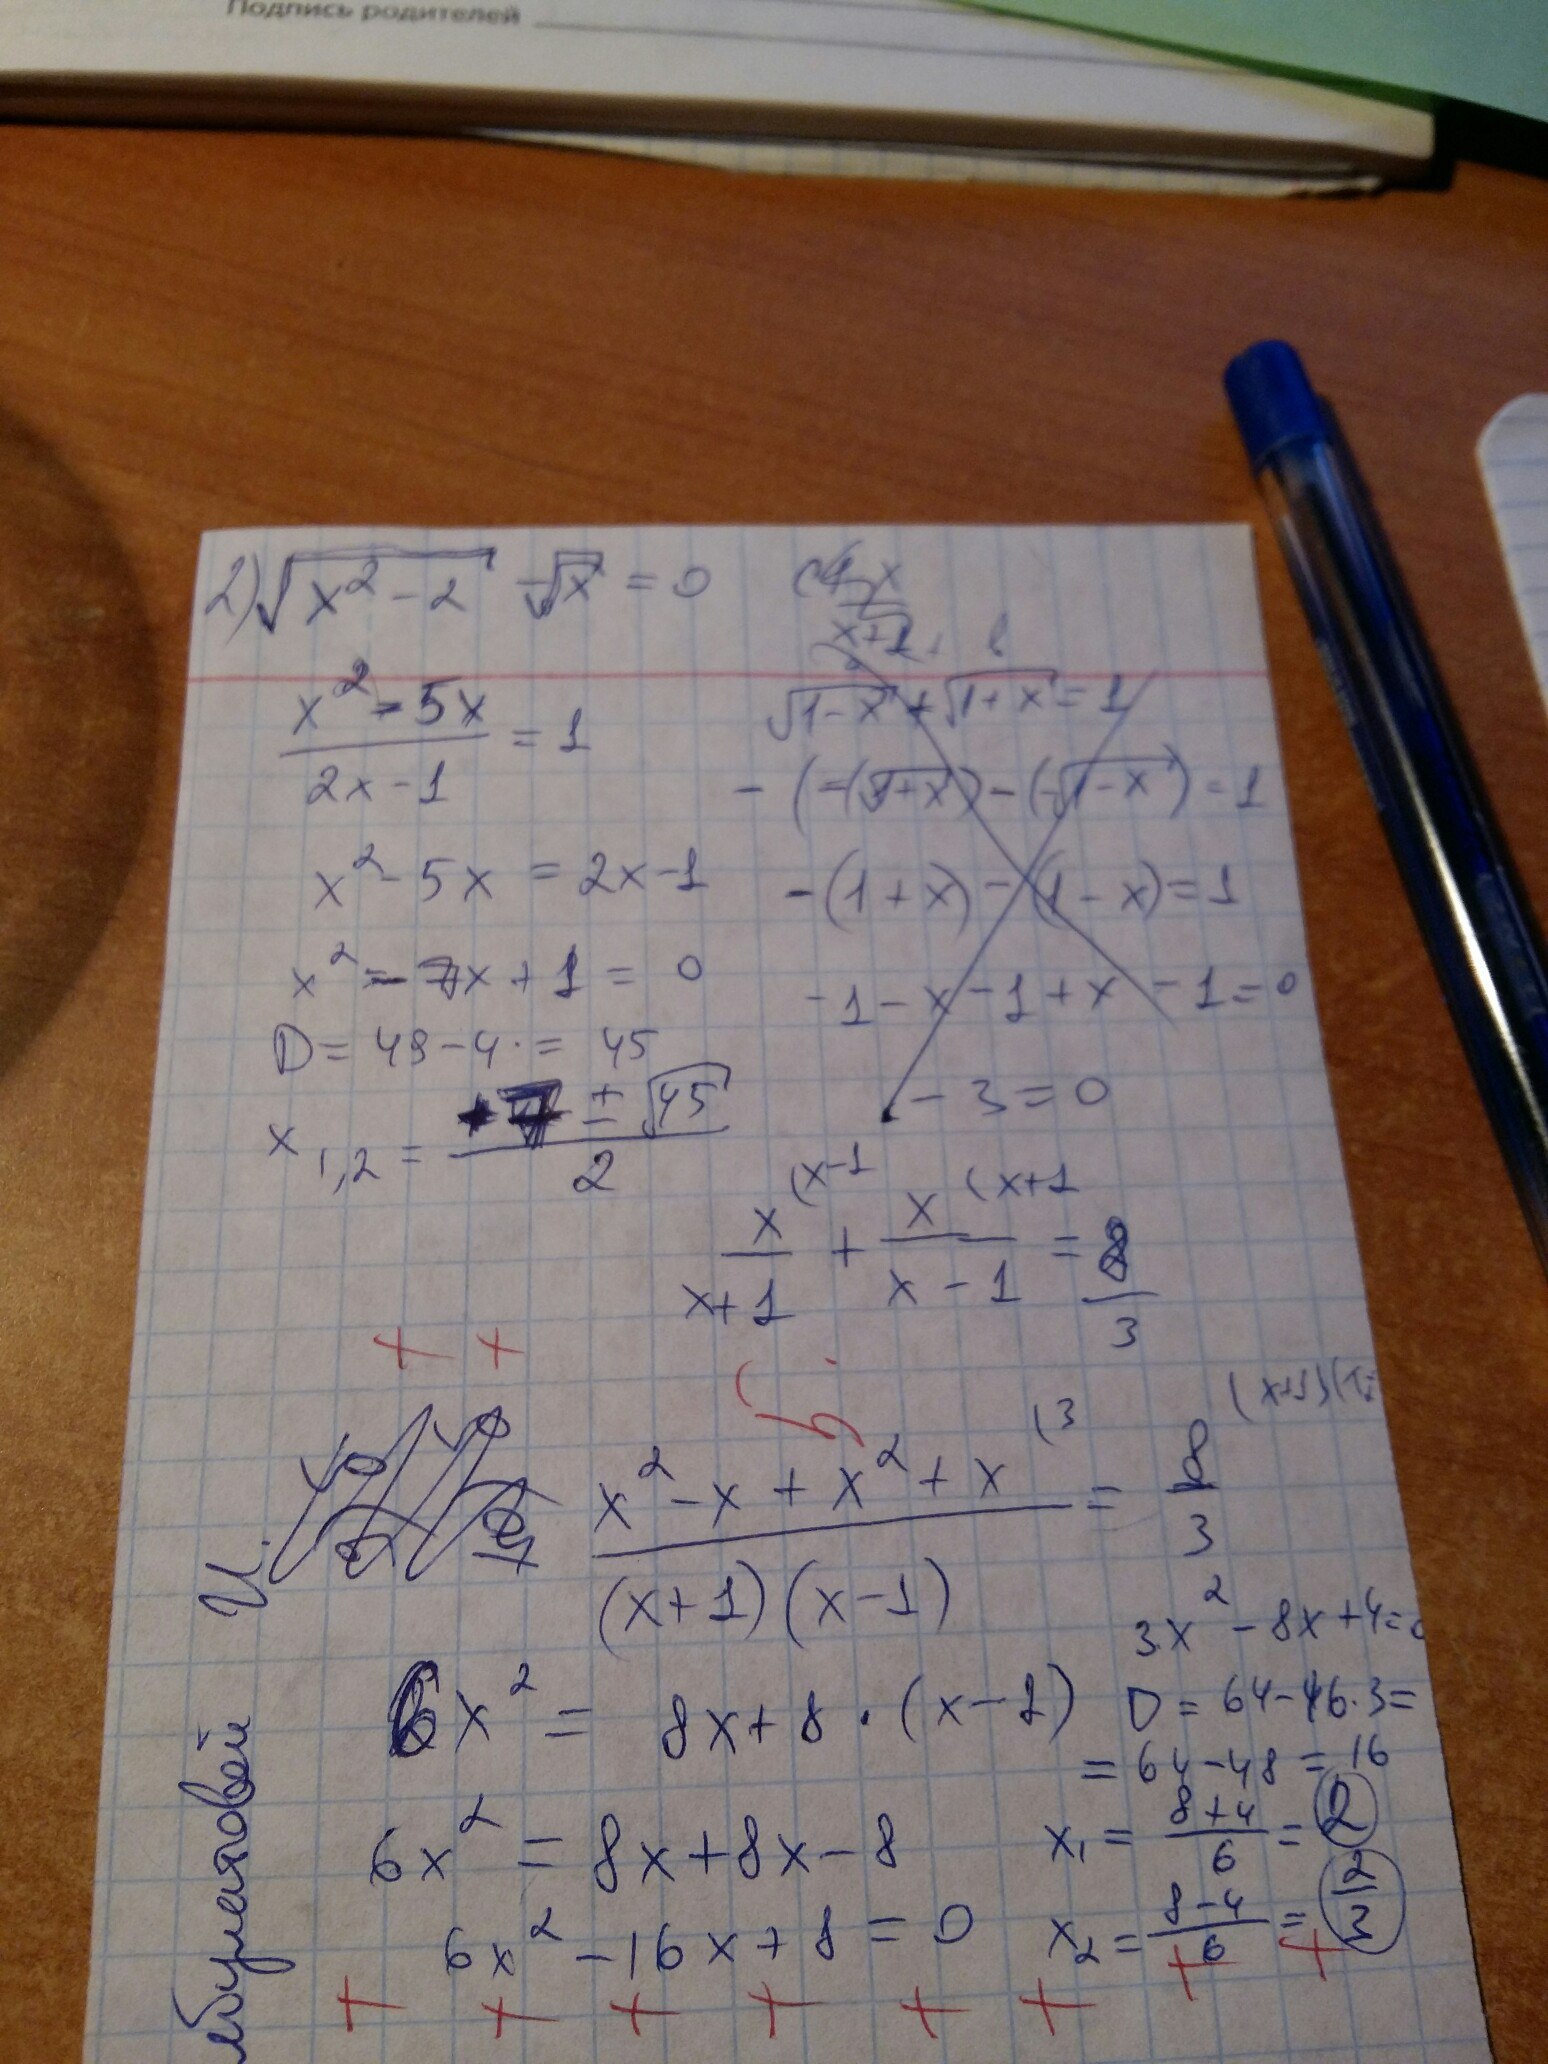 Подпись родителей
2) √(x² - 2) - √x = 0
(x² - 5x)/(2x - 1) = 1
x² - 5x = 2x - 1
x² - 7x + 1 = 0
D = 49 - 4 · = 45
x₁,₂ = (+7 ± √45)/2
√(1 - x) + √(1 + x) = 1
- (-(√(1+x)) - (-√(1 - x)) = 1
- (1 + x) - (1 - x) = 1
- 1 - x - 1 + x - 1 = 0
- 3 = 0
x/(x+1) (x-1 + x/(x - 1) (x+1 = 8/3
(x² - x + x² + x)/((x+1)(x-1)) (3 = 8/3
6x² = 8x + 8 · (x - 1)
6x² = 8x + 8x - 8
6x² - 16x + 8 = 0
3x² - 8x + 4 = 0
D = 64 - 16·3 =
= 64 - 48 = 16
x₁ = (8+4)/6 = 2
x₂ = (8-4)/6 = 2/3
+ +
+ + + + + + + +